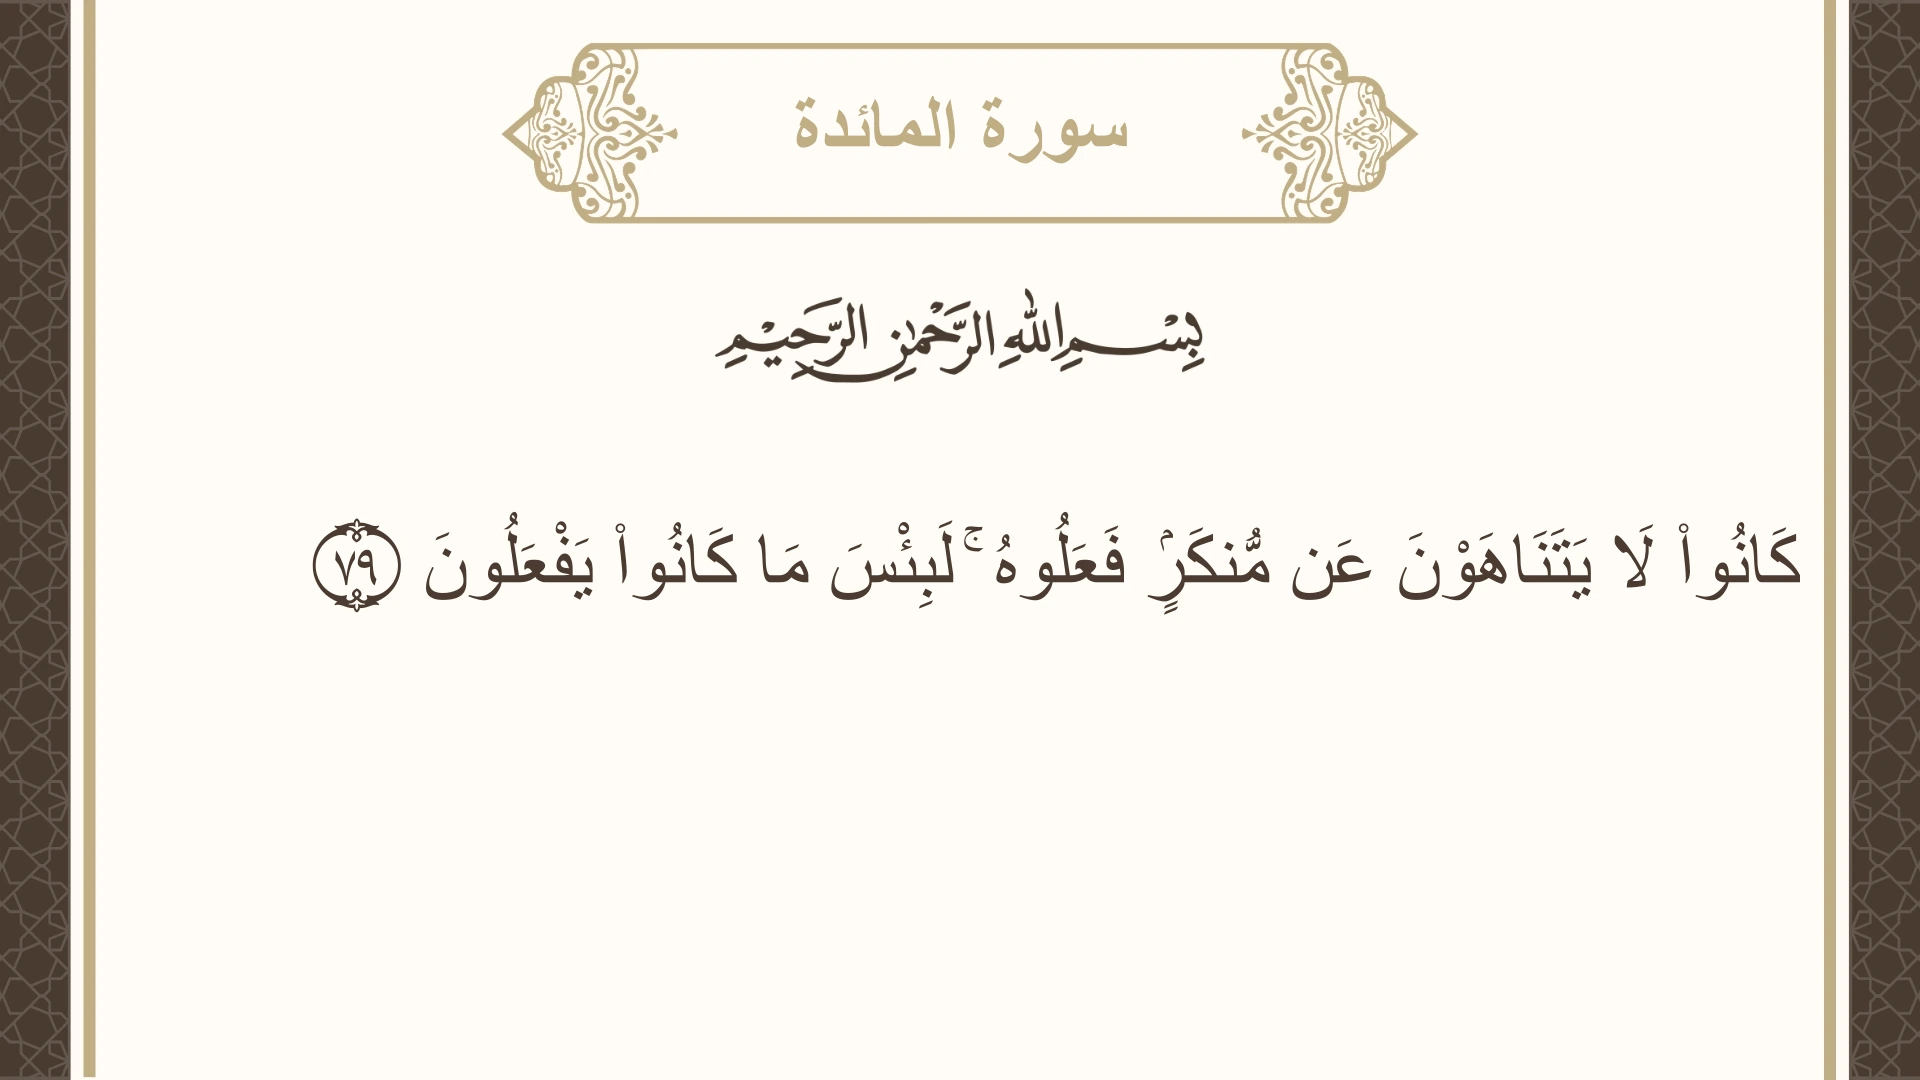 سورة المائدة
بِسْمِ اللهِ الرَّحْمٰنِ الرَّحِيْمِ
كَانُوا۟ لَا يَتَنَاهَوْنَ عَن مُّنكَرٍۢ فَعَلُوهُ ۚ لَبِئْسَ مَا كَانُوا۟ يَفْعَلُونَ ٧٩